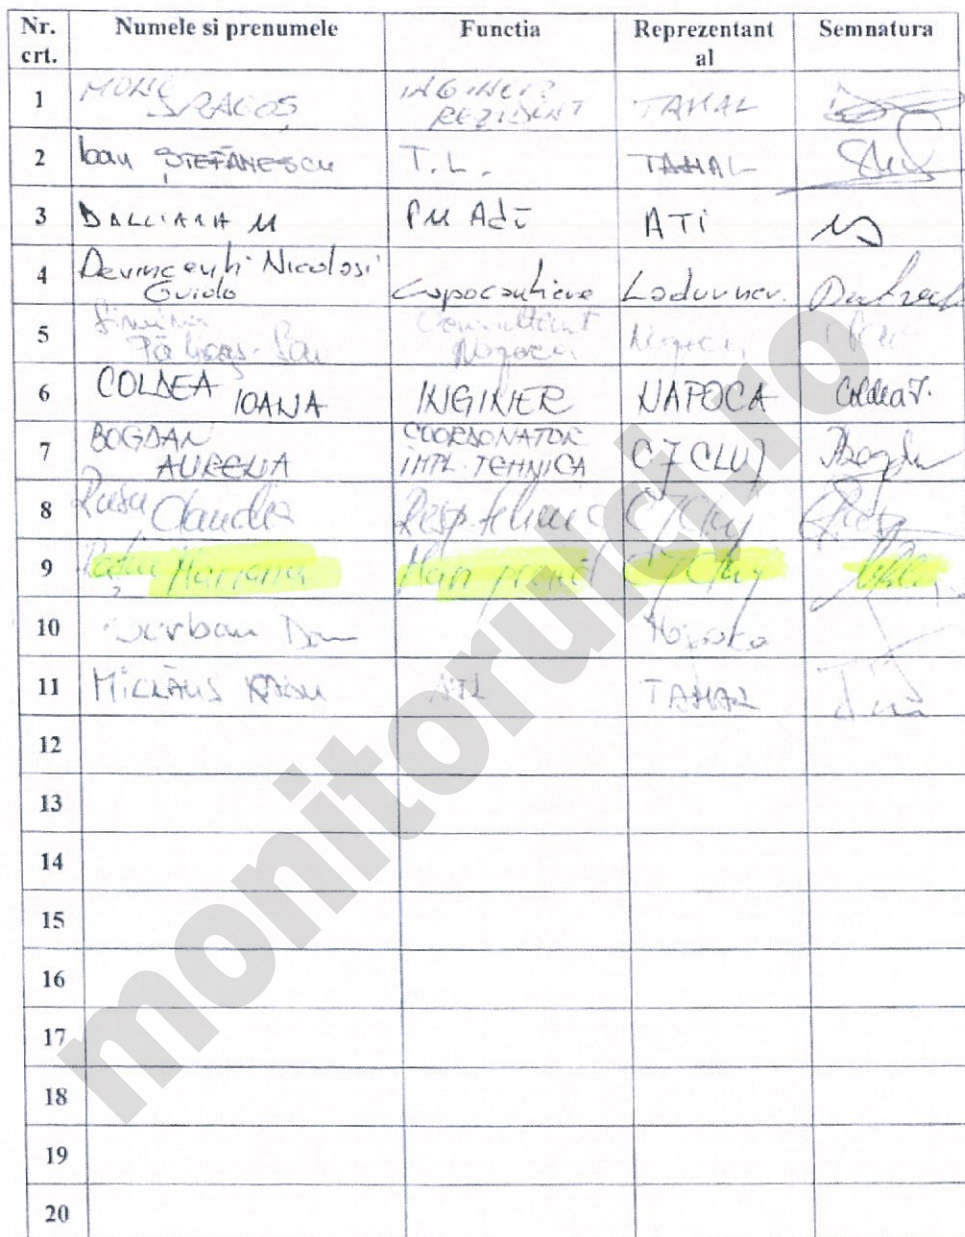 Nr. crt. Numele si prenumele Functia Reprezentant al Semnatura
1 DRAGOȘ INGINER REZIDENT TAHAL
2 Ioan ȘTEFĂNESCU T.L. TAHAL
3 M PM Adj ATI
4 Devincenti Nicolosi Guido Capocantiere Ladurner.
5 Consultant Napoca Napoca
6 COLDEA IOANA INGINER NAPOCA Coldea I.
7 BOGDAN AURELIA COORDONATOR IMPL. TEHNICA CJ CLUJ Bogdan
8 Rusu Claudia Resp. tehnic CJ Cluj
9 Rațiu Mariana Man proiect CJ Cluj
10 Șerban Dan
11 MICLĂUȘ RADU TAHAL
12
13
14
15
16
17
18
19
20
monitorulcj.ro